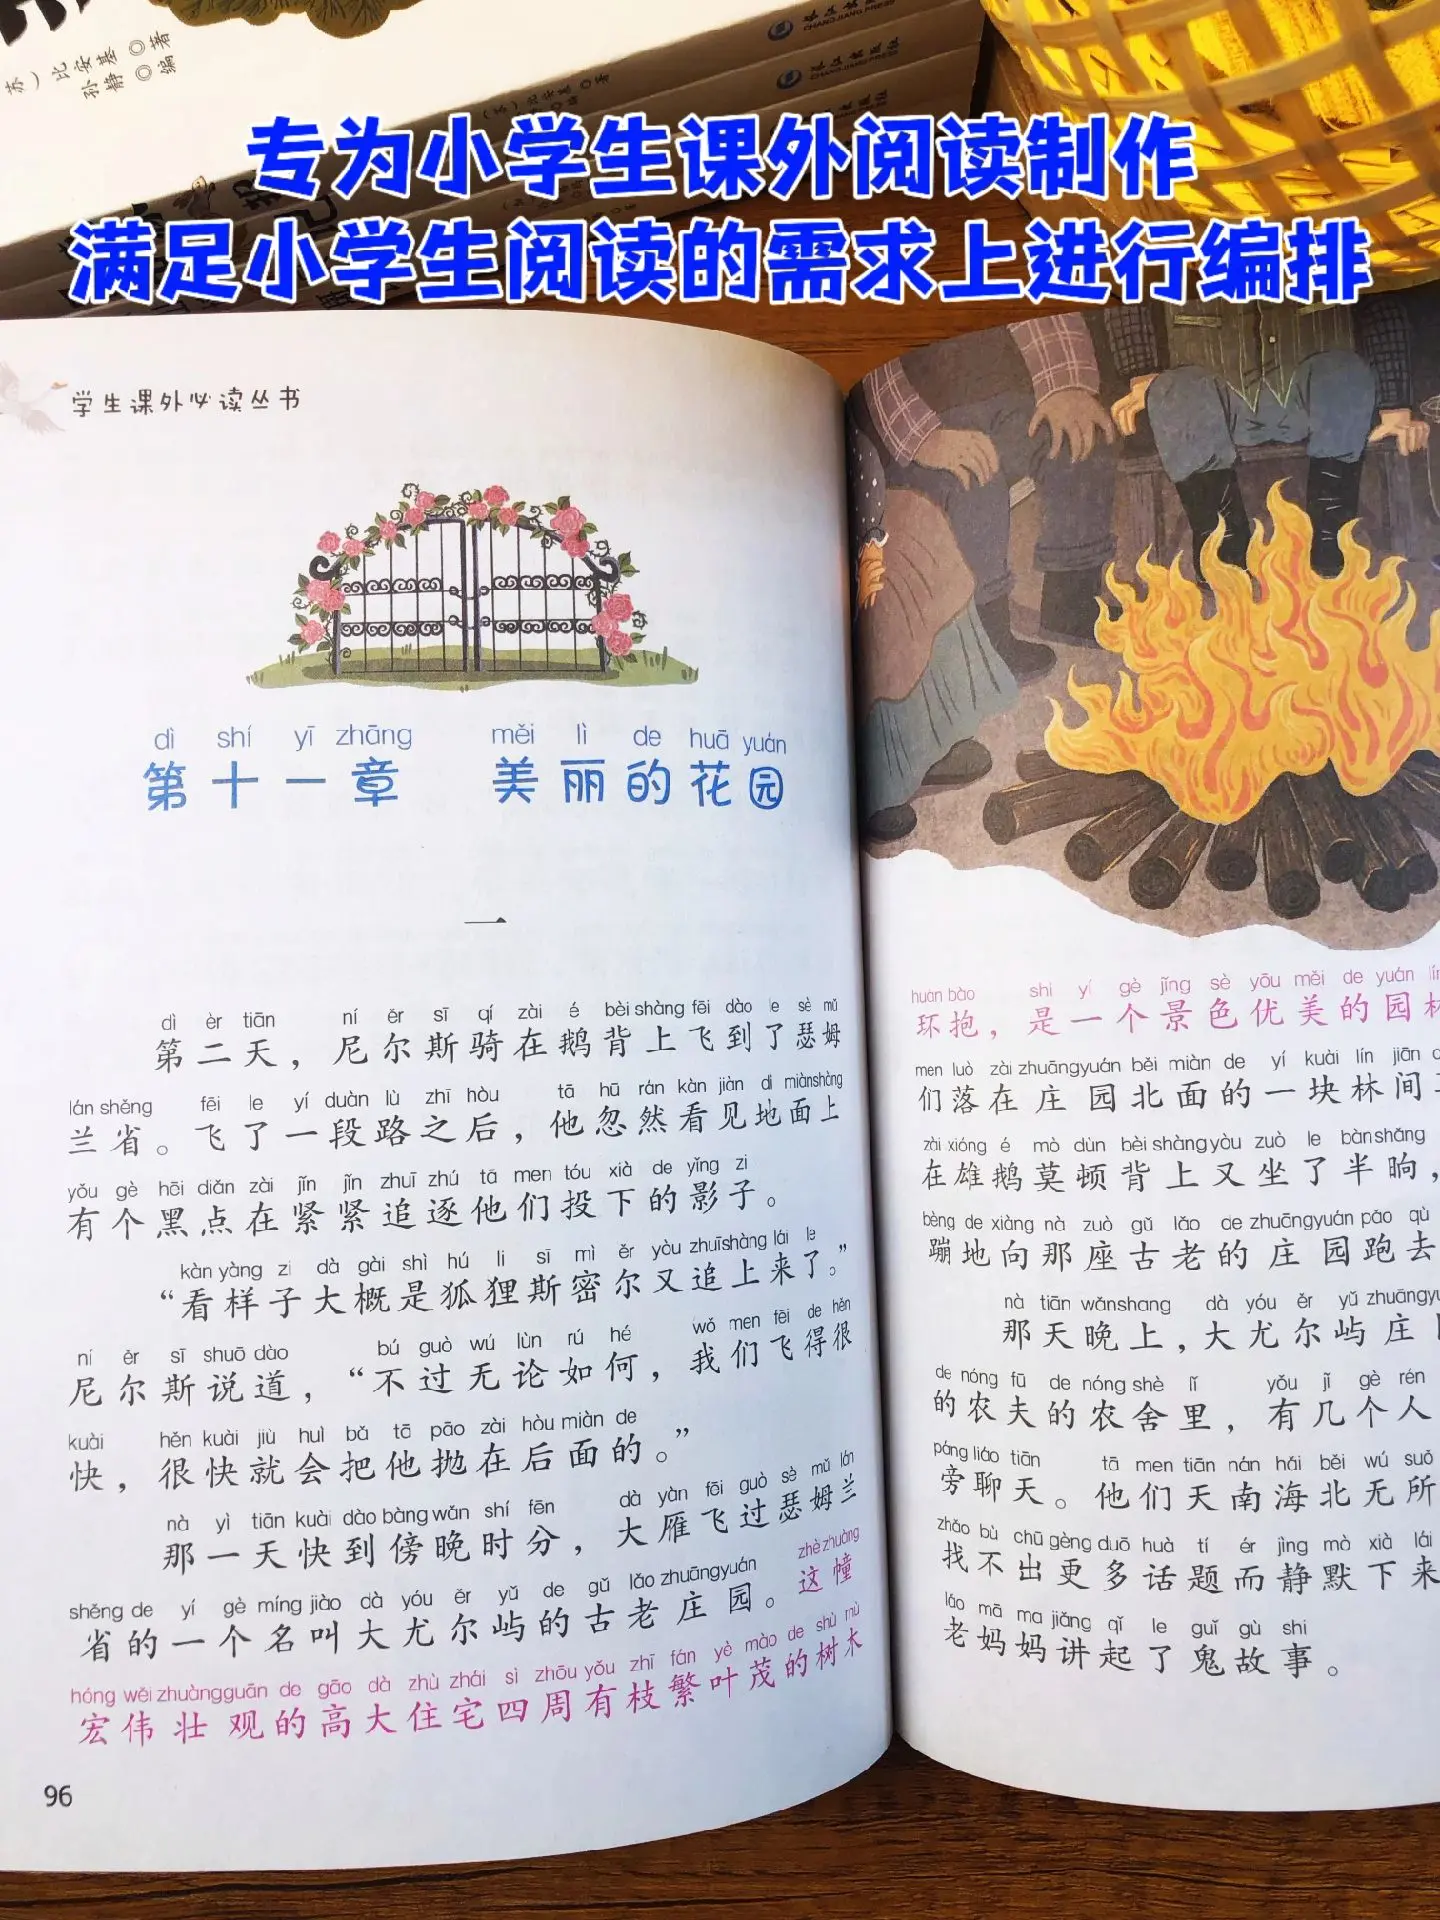 苏）比安基◎著
孙静◎编
CHANGJIANG PRESS
CHANGJIANG PRESS
专为小学生课外阅读制作
满足小学生阅读的需求上进行编排
学生课外必读丛书
dì shí yī zhāng měi lì de huā yuán
第十一章 美丽的花园
一
dì èr tiān ní ěr sī qí zài é bèi shàng fēi dào le sè mǔ
第二天，尼尔斯骑在鹅背上飞到了瑟姆
lán shěng fēi le yí duàn lù zhī hòu tā hū rán kàn jiàn dì miàn shàng
兰省。飞了一段路之后，他忽然看见地面上
yǒu gè hēi diǎn zài jǐn jǐn zhuī zhú tā men tóu xià de yǐng zi
有个黑点在紧紧追逐他们投下的影子。
kàn yàng zi dà gài shì hú li sī mì ěr yòu zhuī shàng lái le
“看样子大概是狐狸斯密尔又追上来了。”
ní ěr sī shuō dào bú guò wú lùn rú hé wǒ men fēi de hěn
尼尔斯说道，“不过无论如何，我们飞得很
kuài hěn kuài jiù huì bǎ tā pāo zài hòu miàn de
快，很快就会把他抛在后面的。”
nà yì tiān kuài dào bàng wǎn shí fēn dà yàn fēi guò sè mǔ lán
那一天快到傍晚时分，大雁飞过瑟姆兰
shěng de yí gè míng jiào dà yóu ěr yǔ de gǔ lǎo zhuāng yuán zhè zhuàng
省的一个名叫大尤尔屿的古老庄园。这幢
hóng wěi zhuàng guān de gāo dà zhù zhái sì zhōu yǒu zhī fán yè mào de shù mù
宏伟壮观的高大住宅四周有枝繁叶茂的树木
96
huán bào shì yí gè jǐng sè yōu měi de yuán lín
环抱，是一个景色优美的园林
men luò zài zhuāng yuán běi miàn de yí kuài lín jiān
们落在庄园北面的一块林间
zài xióng é mò dùn bèi shàng yòu zuò le bàn shǎng
在雄鹅莫顿背上又坐了半晌，
bèng de xiàng nà zuò gǔ lǎo de zhuāng yuán pǎo qù
蹦地向那座古老的庄园跑去
nà tiān wǎn shang dà yóu ěr yǔ zhuāng
那天晚上，大尤尔屿庄
de nóng fū de nóng shè lǐ yǒu jǐ gè rén
的农夫的农舍里，有几个人
páng liáo tiān tā men tiān nán hǎi běi wú suǒ
旁聊天。他们天南海北无所
zhǎo bù chū gèng duō huà tí ér jìng mò xià lái
找不出更多话题而静默下来
lǎo mā ma jiǎng qǐ le guǐ gù shi
老妈妈讲起了鬼故事。